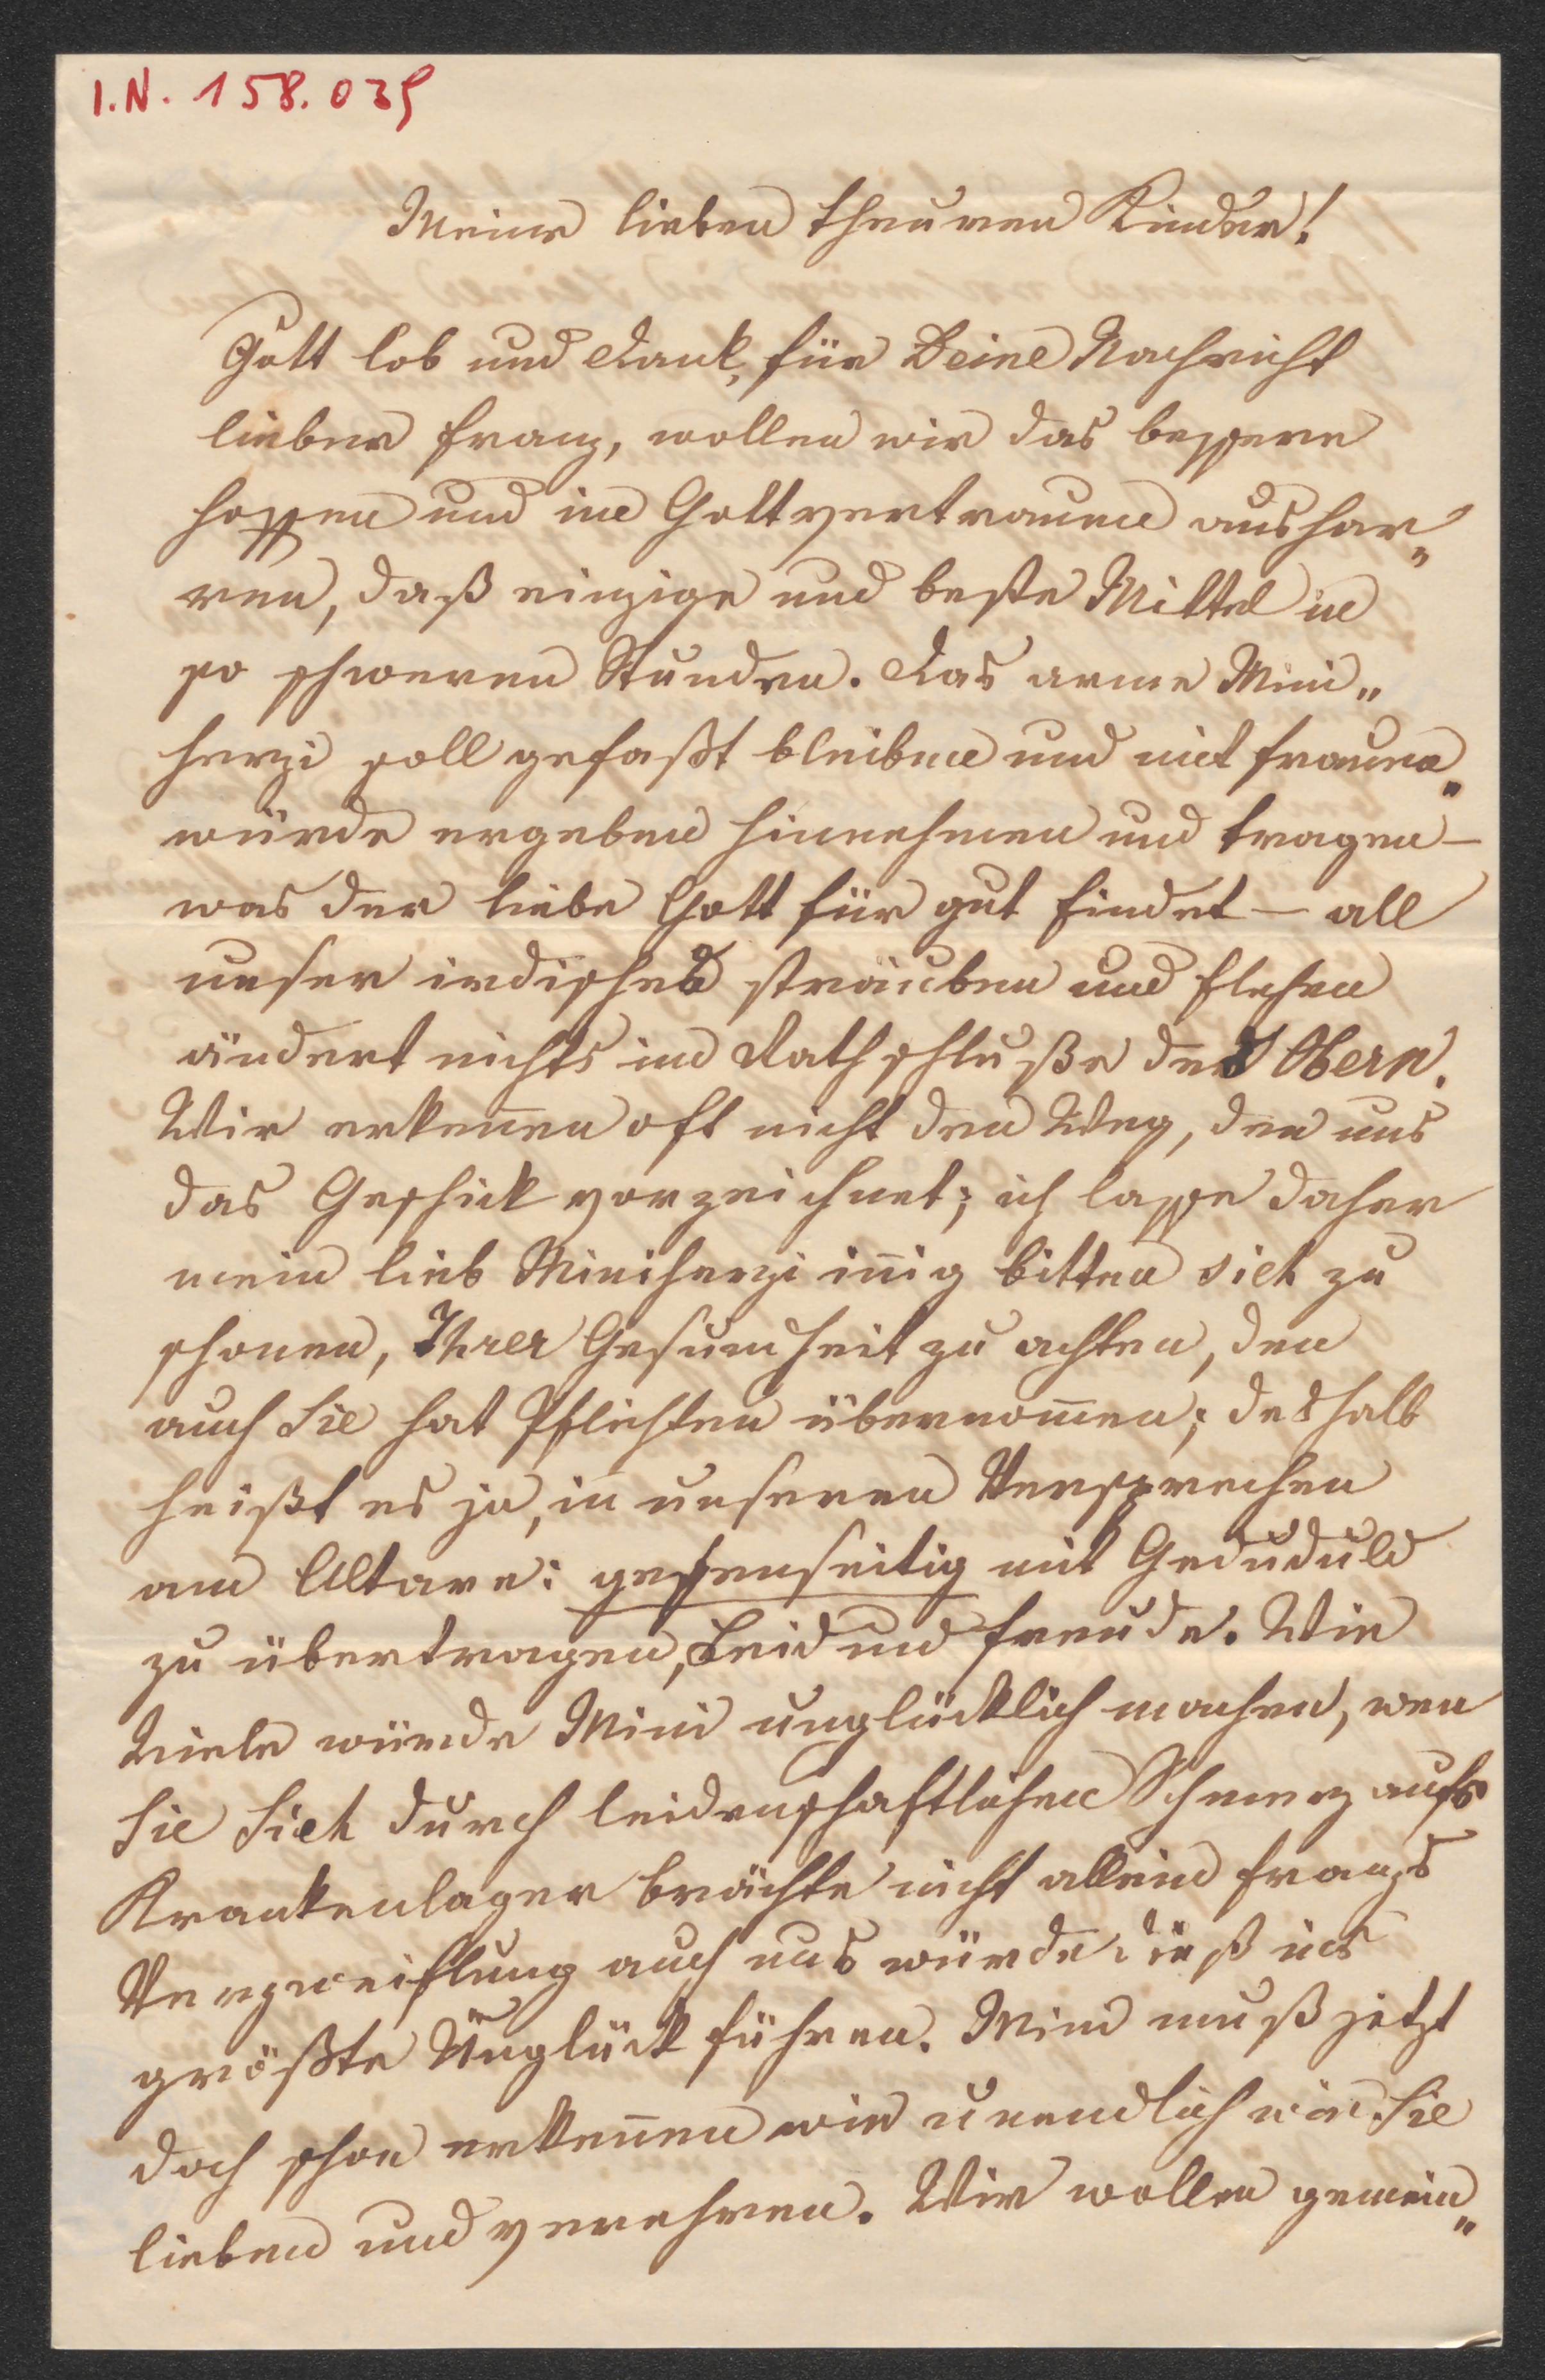 I.N. 158.035
Meine lieben theuren Kinder!
Gott lob und Dank, für Deine Nachricht
lieber Franz, wollen wir das bessere
hoffen und in Gottvertrauen aushar„
ren, daß einzige und beste Mittel in
so schweren Stunden. Das arme Mini„
herzi soll gefaßt bleiben und mit Frauen„
würde ergeben hinnehmen und tragen –
was der liebe Gott für gut findet – all
unser irdisches sträuben und flehen
ändert nichts im Rathschluße des Obern.
Wir erkeñen oft nicht den Weg, den uns
das Geschick vorzeichnet; ich lasse daher
mein lieb Miniherzi iñig bitten sich zu
schonen, Ihrer Gesundheit zu achten, den
auch Sie hat Pflichten übernom̄en; deshalb
heißt es ja, in unseren Versprechen
am Altare: gegenseitig mit Geduduld
zu übertragen, Leid und Freude. Wie
Viele würde Mini unglücklich machen, wen
Sie Sich durch leidenschaftlichen Schmerz aufs
Krankenlager brächte nicht allein Franzs
Verzweiflung auch uns würde dieß ins
größte Unglück führen. Mini muß jetzt
doch schon erkeñen wie unendlich wir Sie
lieben und verehren. Wir wollen gemein„